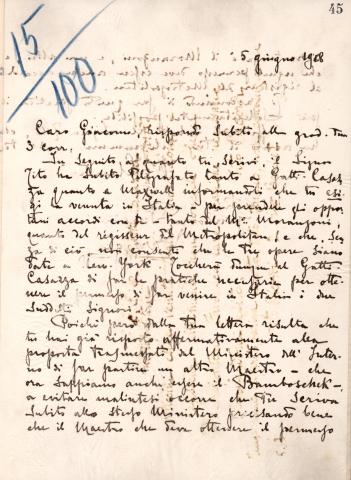 45
15/100
5 giugno 1918
Caro Giacomo, rispondo subito alla grad. tua
3 corr.
In seguito a quanto tu scrivi, il Signor
Tito ha subito telegrafato tanto a Gatti-Casaz-
za quanto a Maxwell informandoli che tu esi-
gi la venuta in Italia - per prendere gli oppor-
tuni accordi con te - tanto del Mo. Moranzoni,
quanto del régisseur del Metropolitan, e che, sen-
za di ciò, non consenti che le tre opere siano
date a New-York. Toccherà dunque al Gatti-
Casazza di far le pratiche necessarie per otte-
nere il permesso di far venire in Italia i due
suddetti Signori.
Poichè però dalla tua lettera risulta che
tu hai già risposto affermativamente alla
proposta trasmessati dal Ministero dell'Inter-
no di far partire un altro Maestro - che
ora sappiamo anche essere il Bamboschek -,
a evitare malintesi occorre che tu scriva
subito allo stesso Ministero precisando bene
che il Maestro che deve ottenere il permesso